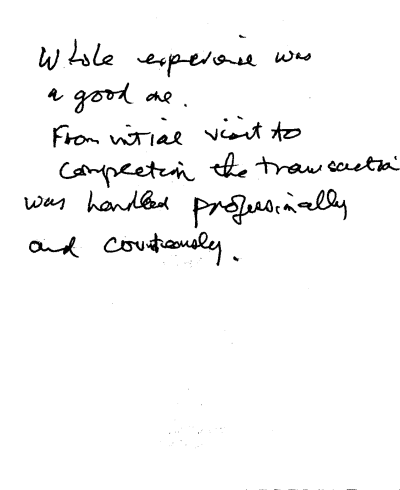 Whole experience was
a good one.
From initial visit to
completion the transaction
was handled professionally
and courteously.